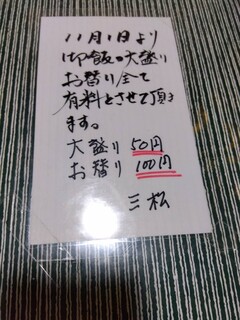 11月1日より
御飯の大盛り
お替り全て
有料とさせて頂き
ます。
大盛り 50円
お替り 100円
三松